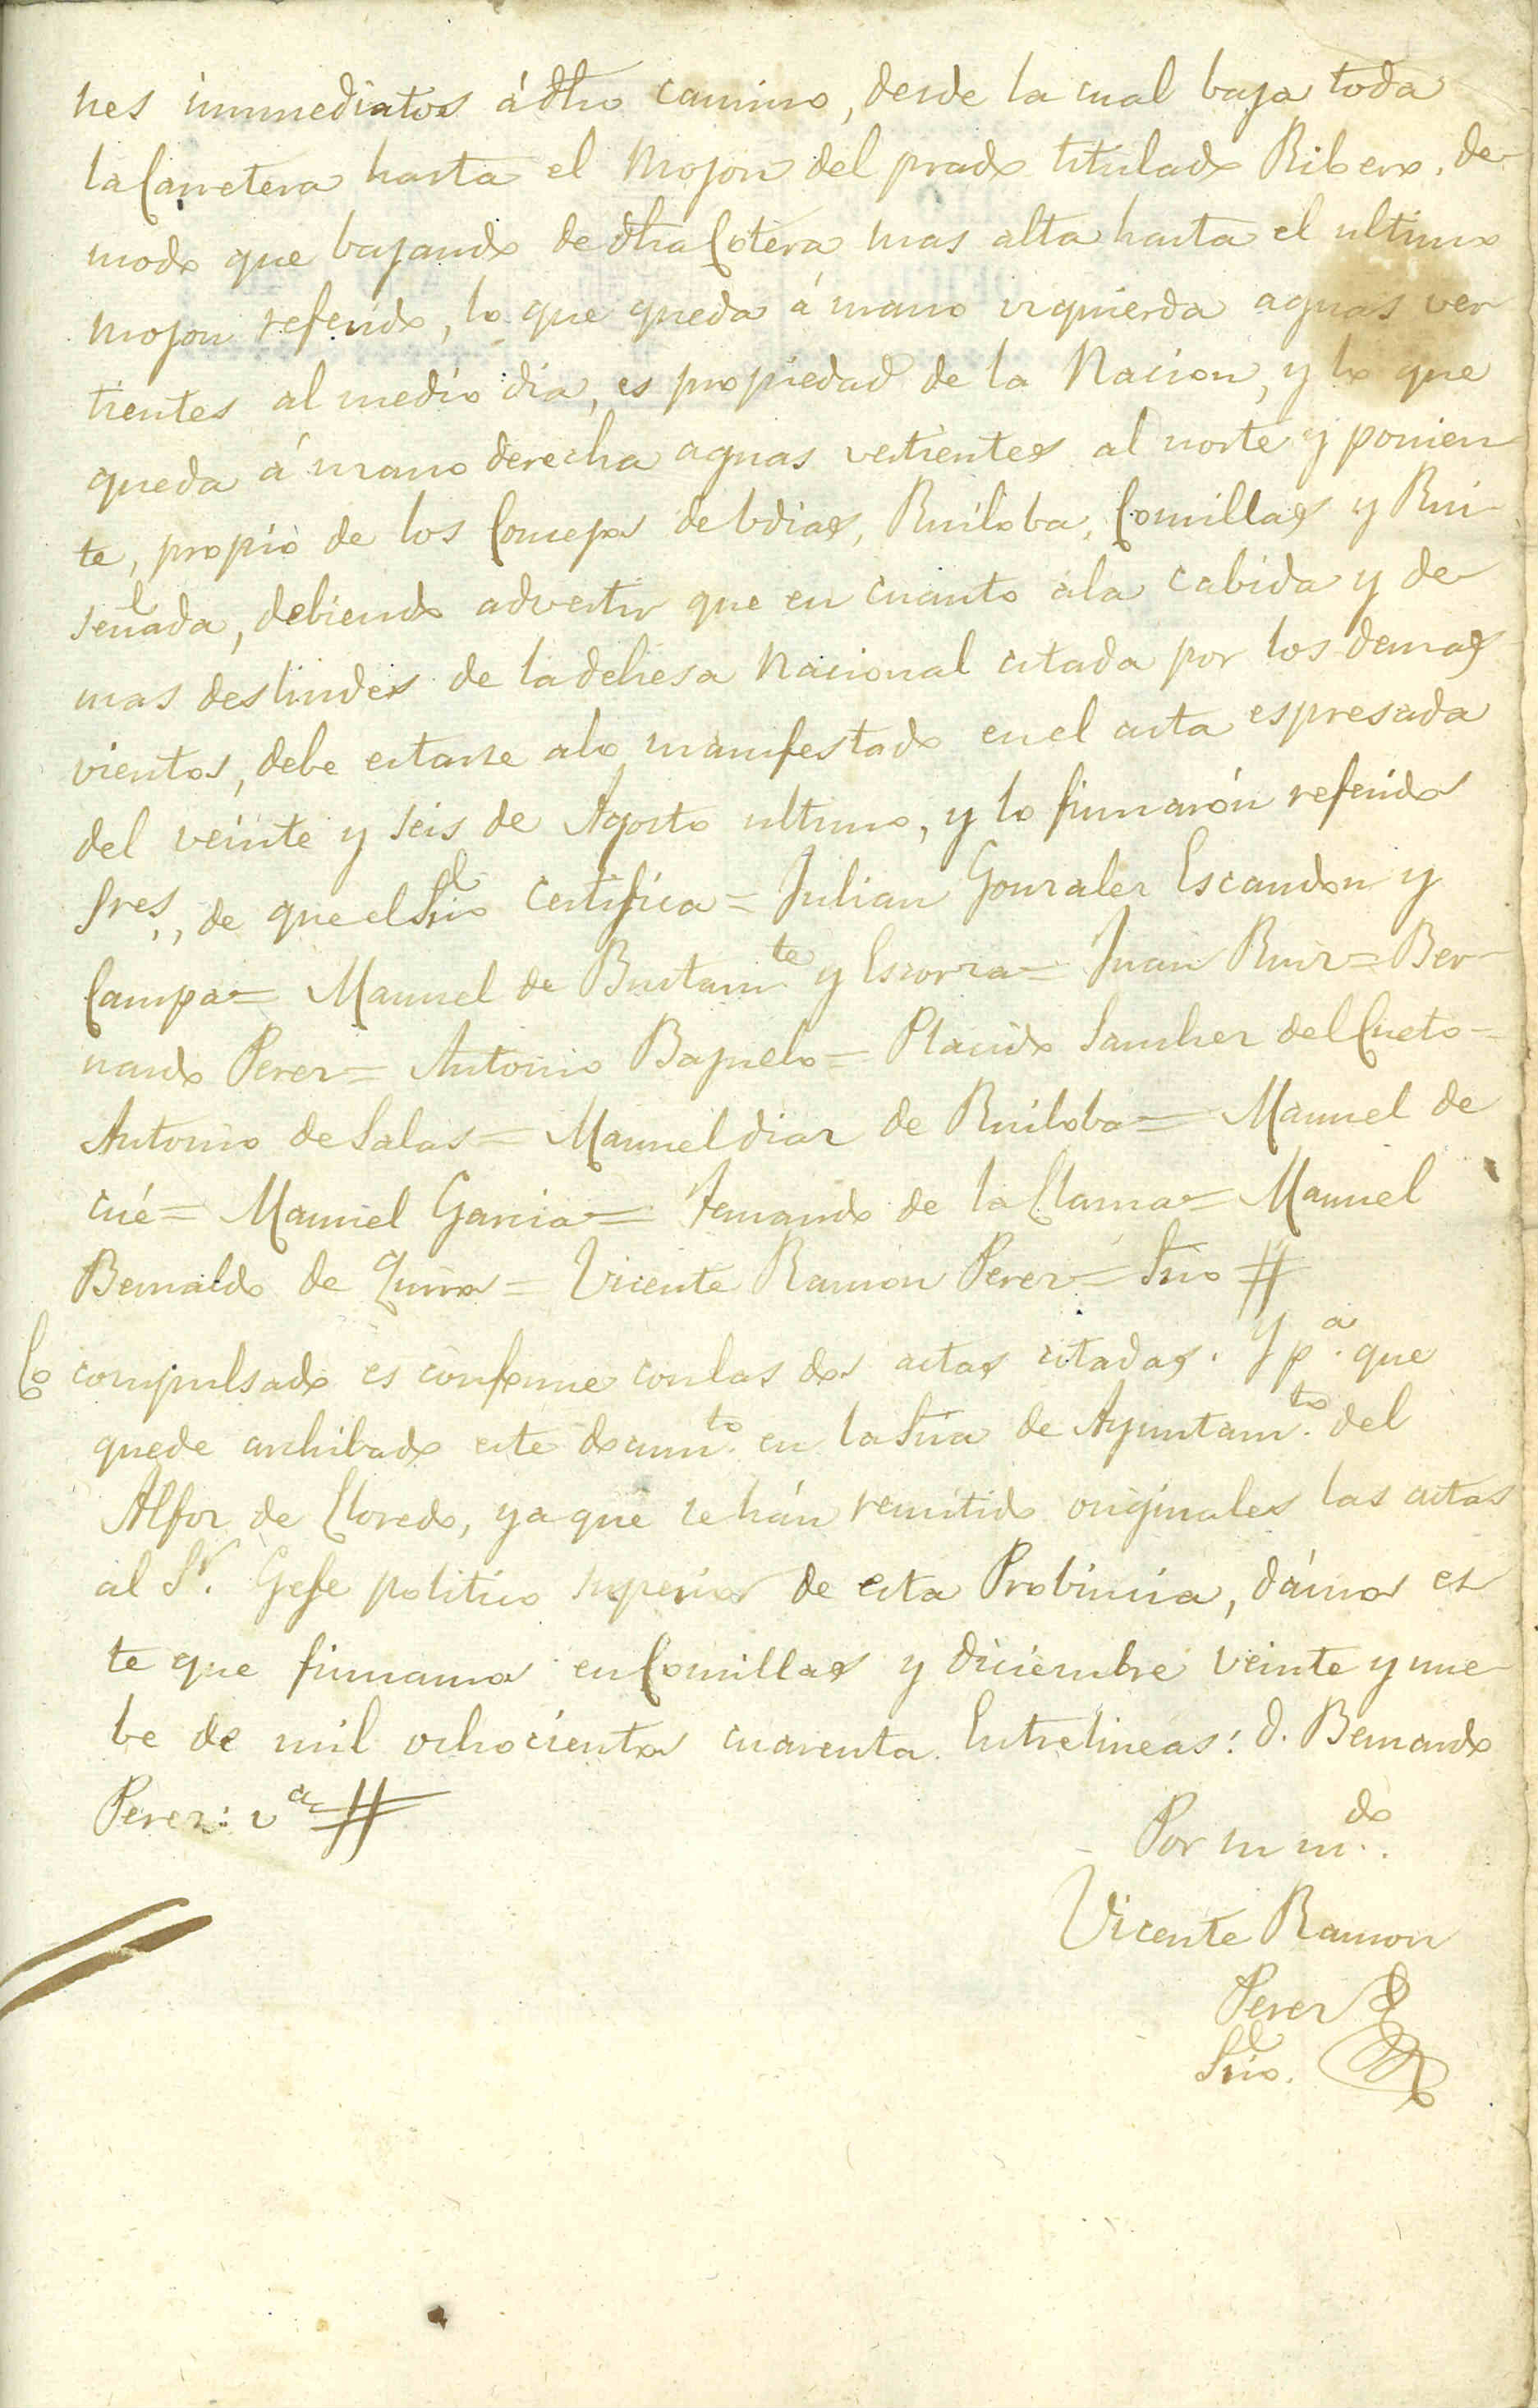 nes inmediatos á dho camino, desde la cual baja toda
la Carretera hasta el Mojon del prado titulado Ribero, de
modo que bajando de dha Cotera mas alta hasta el ultimo
mojon referido, lo que queda á mano izquierda aguas ver
tientes al medio dia, es propiedad de la Nacion, y lo que
queda á mano derecha aguas vertientes al norte y ponien
te, propio de los Concejos de Udias, Ruiloba, Comillas y Rui
señada, debiendo advertir que en cuanto ala cabida y de
mas deslindes de la dehesa Nacional citada por los demas
vientos, debe estarse alo manifestado en el acta espresada
del veinte y seis de Agosto ultimo, y lo firmarón referidos
Sres,, de que el Srio certifica = Julian Gonzalez Escandon y
Campa = Manuel de Bustamte y Escorza = Juan Ruiz = Ber-
nardo Perez = Antonio Bajuelo = Placido Sanchez del Cueto =
Antonio de Salas = Manuel diaz de Ruiloba = Manuel de
cué = Manuel Garcia = Fernando de la Llama = Manuel
Bernaldo de Quiros = Vicente Ramon Perez = Srio #
Co compulsado es conforme con las dos actas citadas. Y pa. que
quede archibado este documto. en la Sria de Ayuntamto. del
Alfoz de Lloredo, ya que se hán remitido originales las actas
al Sr. Gefe politico superior de esta Probincia, dámos es
te que firmamos en Comillas y diciembre veinte y nue
be de mil ochocientos cuarenta. Entrelineas: d. Bernardo
Perez: va #
Por m mdo.
Vicente Ramon
Perez
Srio.